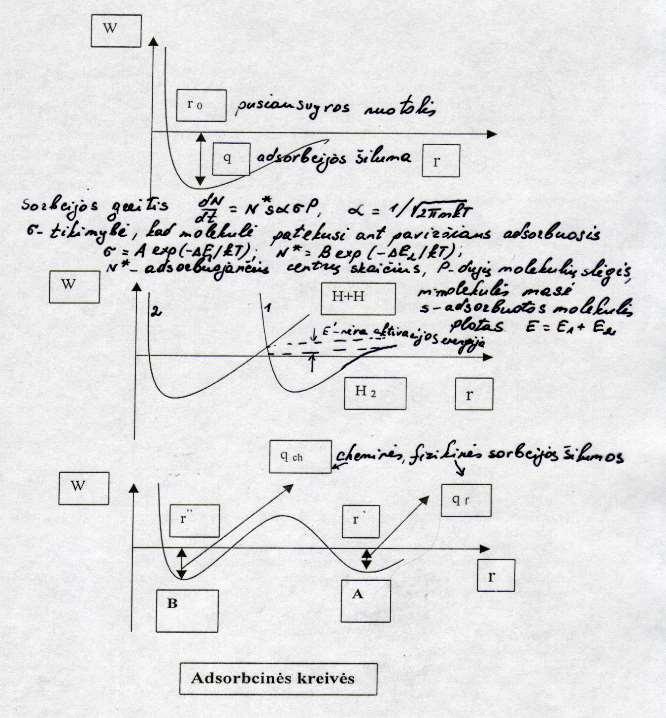 W
r₀ pusiausvyros nuotolis
q adsorbcijos šiluma r
Sorbcijos greitis dN/dt = N*sασP, α = 1/√2πmkT
σ- tikimybė, kad molekulė patekusi ant paviršiaus adsorbuosis
σ = A exp(-ΔE₁/kT); N* = B exp(-ΔE₂/kT);
N*- adsorbuojančių centrų skaičius, P-dujų molekulių slėgis,
W H+H m-molekulės masė
2 1 s-adsorbuotos molekulės
plotas E = E₁ + E₂
E'-nėra aktivacijos energija
H₂ r
q ch cheminės, fizikinės sorbcijos šilumos
W q f
r'' r'
r
B A
Adsorbcinės kreivės